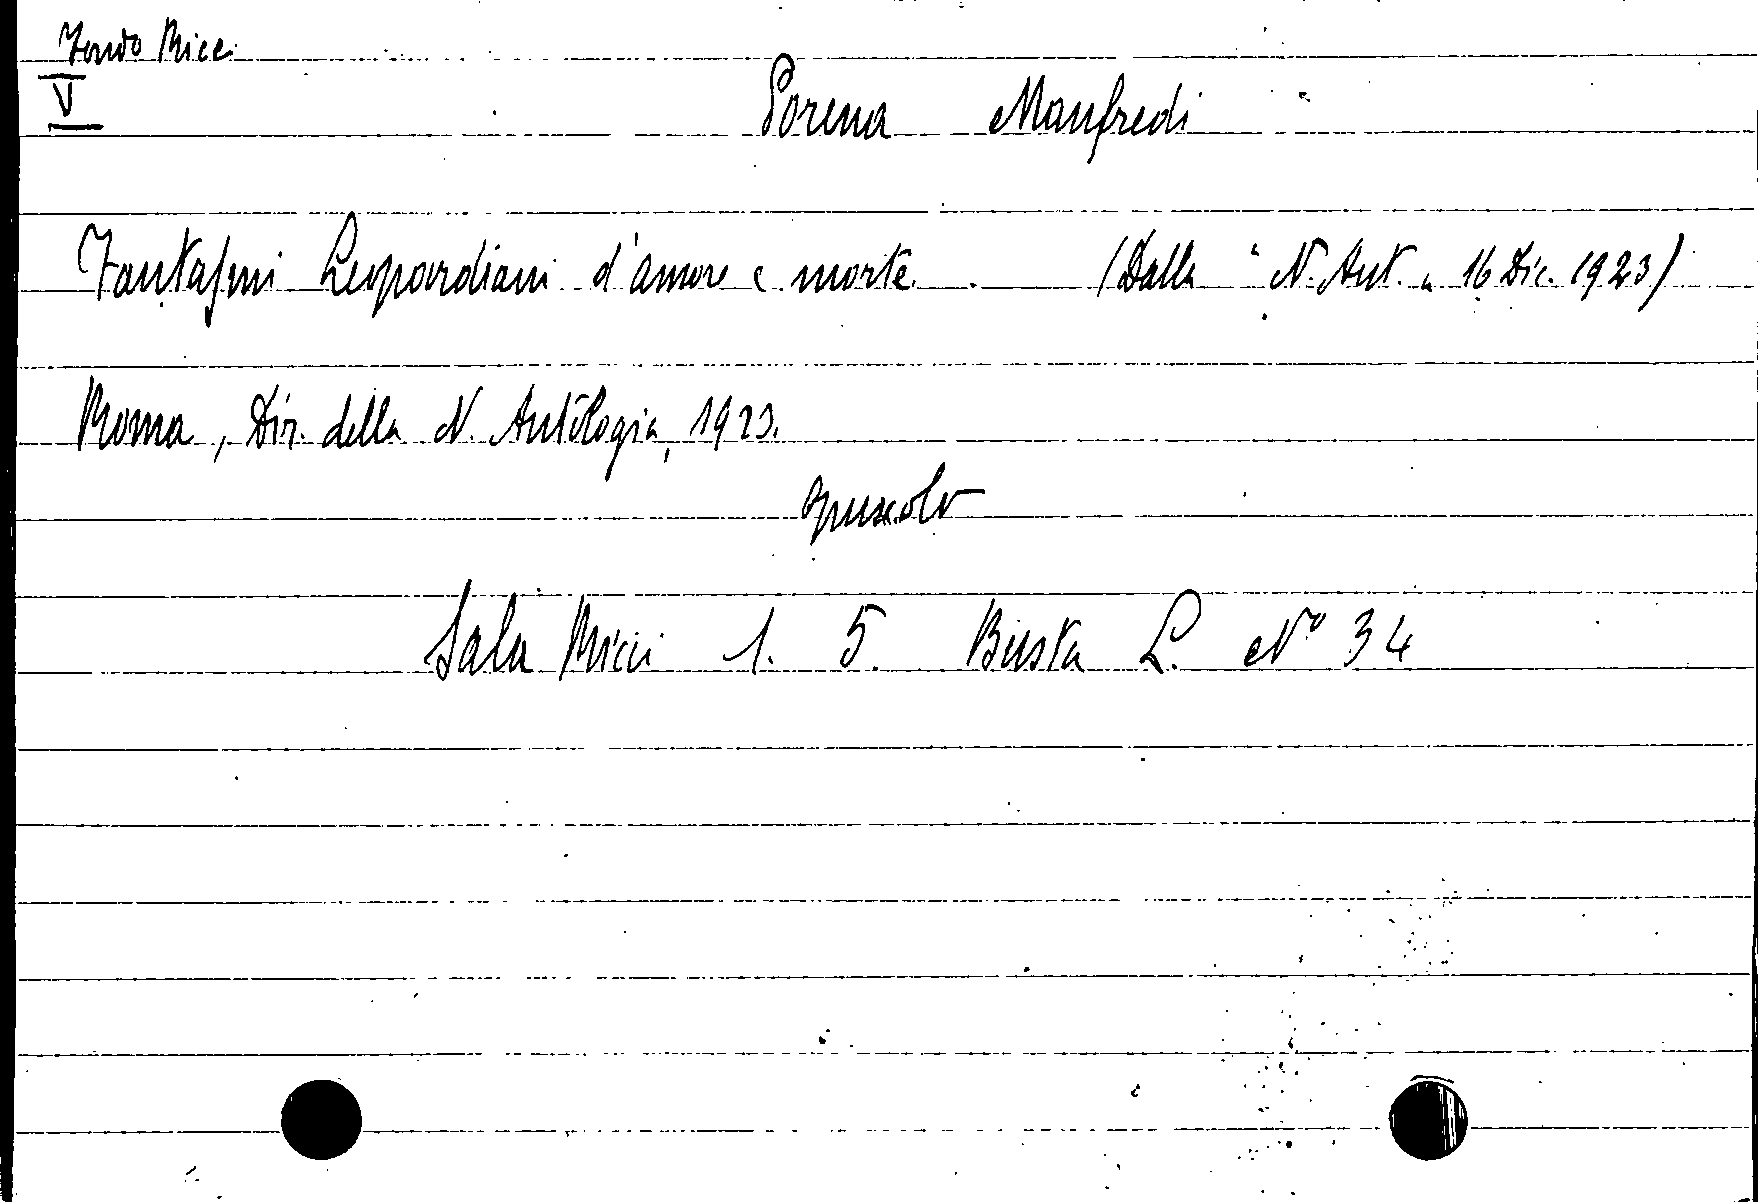 Fondo Ricci
V
Porena Manfredi
Fantasmi Leopardiani d'amore e morte. (Dalla "N. Ant." 16 Dic. 1923)
Roma, Dir. della N. Antologia, 1923.
opuscolo
Sala Ricci 1. 5. Busta L. N° 34